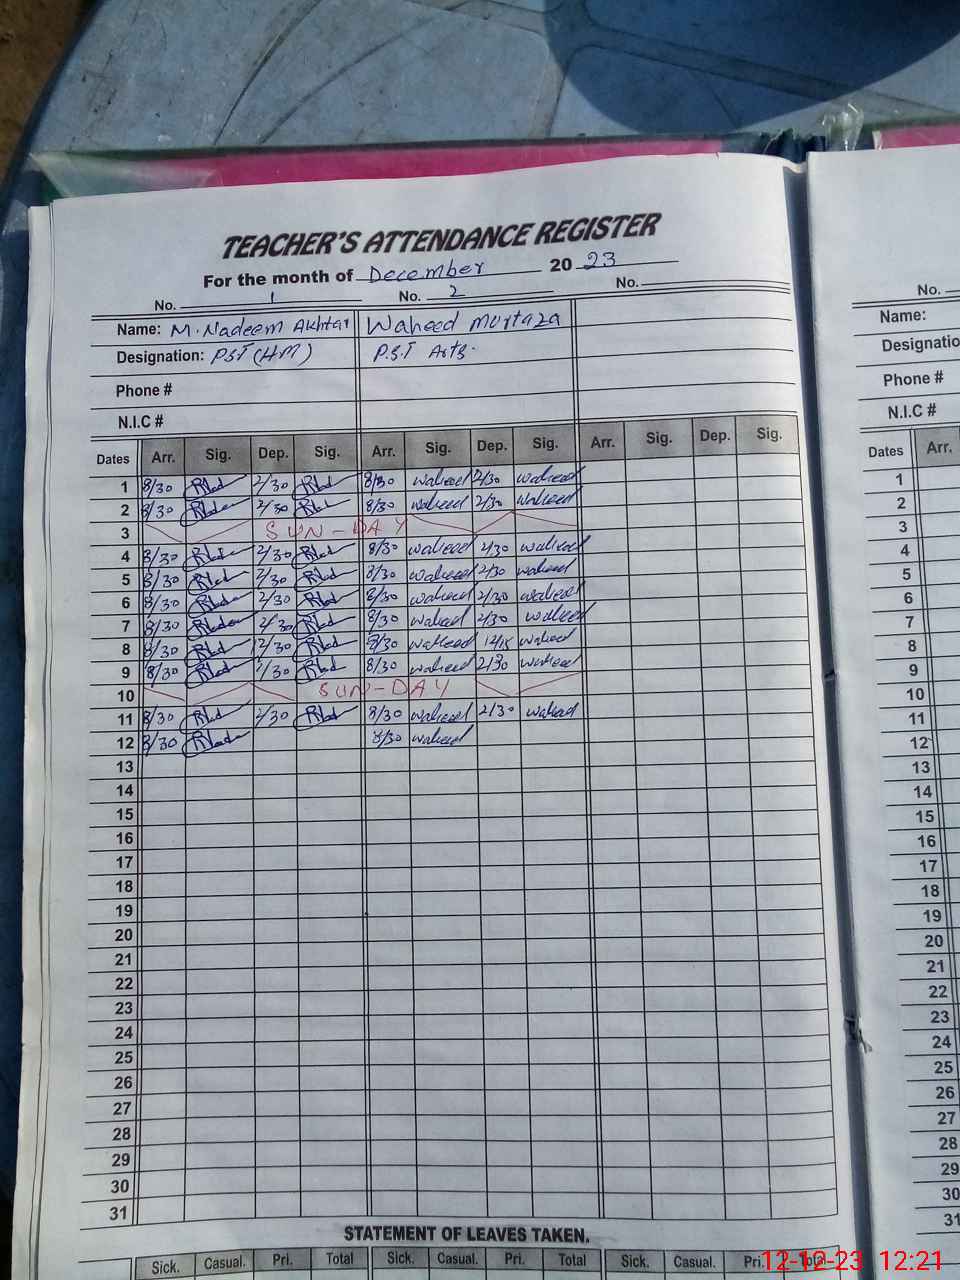 TEACHER'S ATTENDANCE REGISTER
For the month of December 20 23
No. 1 No. 2 No.
Name: M. Nadeem Akhtar Waheed Murtaza
Designation: PST (HM) P.S.T Arts.
Phone #
N.I.C #
Dates Arr. Sig. Dep. Sig. Arr. Sig. Dep. Sig. Arr. Sig. Dep. Sig.
1 8/30 2/30 8/30 waheed 2/30 waheed
2 8/30 2/30 8/30 waheed 2/30 waheed
3 SUN-DAY
4 8/30 2/30 8/30 waheed 2/30 waheed
5 8/30 2/30 8/30 waheed 2/30 waheed
6 8/30 2/30 8/30 waheed 2/30 waheed
7 8/30 2/30 8/30 waheed 2/30 waheed
8 8/30 12/30 8/30 waheed 12/15 waheed
9 8/30 2/30 8/30 waheed 2/30 waheed
10 SUN-DAY
11 8/30 2/30 8/30 waheed 2/30 waheed
12 8/30 8/30 waheed
13
14
15
16
17
18
19
20
21
22
23
24
25
26
27
28
29
30
31
STATEMENT OF LEAVES TAKEN.
Sick. Casual. Pri. Total Sick. Casual. Pri. Total Sick. Casual. Pri. Total
No.
Name:
Designatio
Phone #
N.I.C #
Dates Arr.
1
2
3
4
5
6
7
8
9
10
11
12
13
14
15
16
17
18
19
20
21
22
23
24
25
26
27
28
29
30
31
12-12-23 12:21